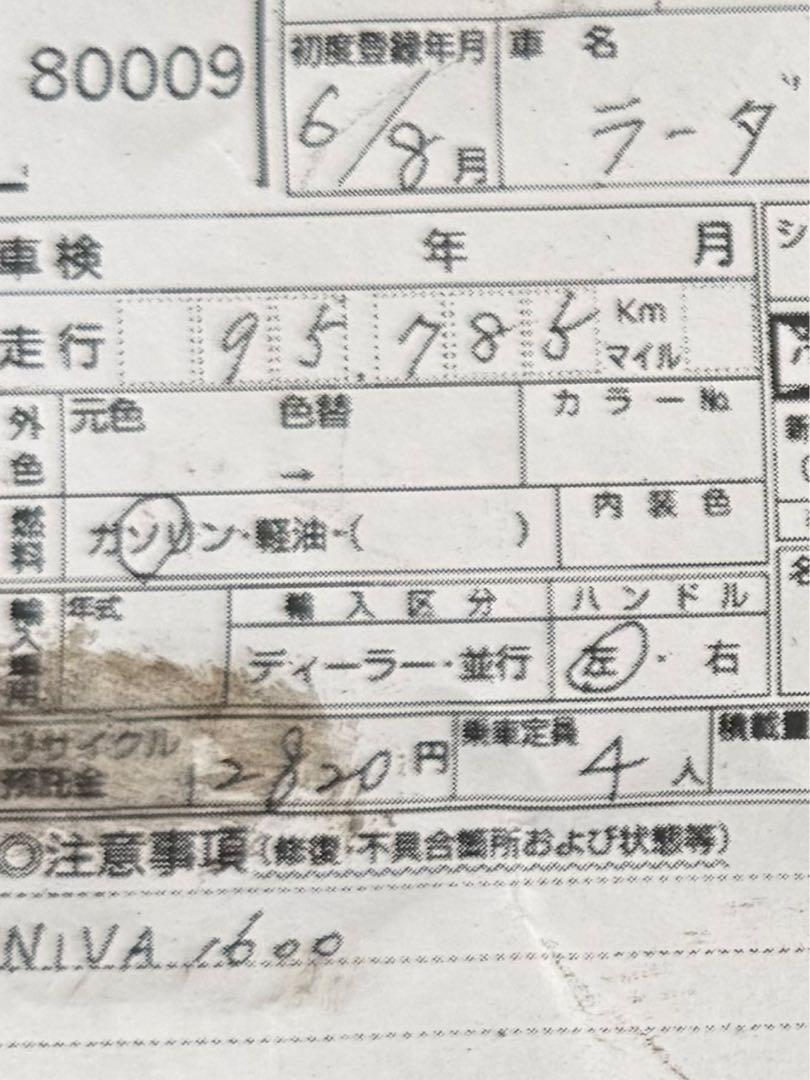 80009
初度登録年月 車名
6/8月 ラーダ
車検 年 月
シ
走行 95.785 Km
マイル
外色 元色 色替 カラー№
→
ガソリン・軽油・( ) 内装色
輸入車用 年式 輸入区分 ハンドル
ディーラー・並行 左・右
リサイクル預託金 12820円 乗車定員 4人 積載量
◎注意事項(修復・不具合箇所および状態等)
NIVA 1600